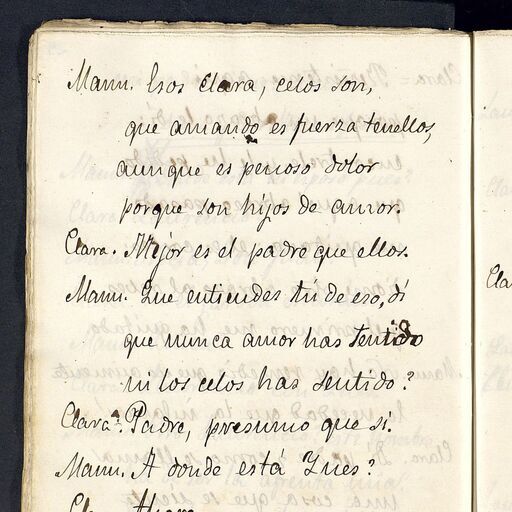 Manu. Esos Clara, celos son,
que amando es fuerza tenellos,
aunque es penoso dolor
porque son hijos de amor.
Clara. Mejor es el padre que ellos.
Manu. Que entiendes tu de eso, di
que nunca amor has tenido
ni los celos has sentido?
Clara. Padre, presumo que si.
Manu. A donde está Ynes?